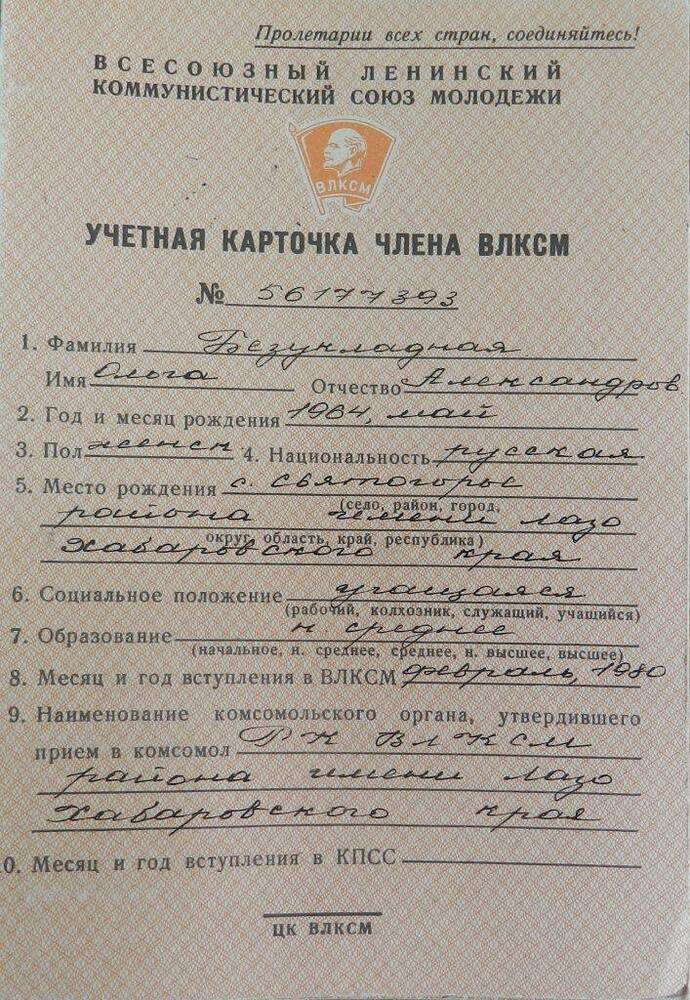 Пролетарии всех стран, соединяйтесь!
ВСЕСОЮЗНЫЙ ЛЕНИНСКИЙ
КОММУНИСТИЧЕСКИЙ СОЮЗ МОЛОДЕЖИ
ВЛКСМ
УЧЕТНАЯ КАРТОЧКА ЧЛЕНА ВЛКСМ
№ 56177393
1. Фамилия Безукладная
Имя Ольга Отчество Александров
2. Год и месяц рождения 1964, май
3. Пол женск 4. Национальность русская
5. Место рождения с. Святогорье
(село, район, город,
района имени Лазо
округ, область, край, республика)
Хабаровского края
6. Социальное положение учащаяся
(рабочий, колхозник, служащий, учащийся)
7. Образование н. среднее
(начальное, н. среднее, среднее, н. высшее, высшее)
8. Месяц и год вступления в ВЛКСМ февраль, 1980
9. Наименование комсомольского органа, утвердившего
прием в комсомол РК ВЛКСМ
района имени Лазо
Хабаровского края
10. Месяц и год вступления в КПСС
ЦК ВЛКСМ